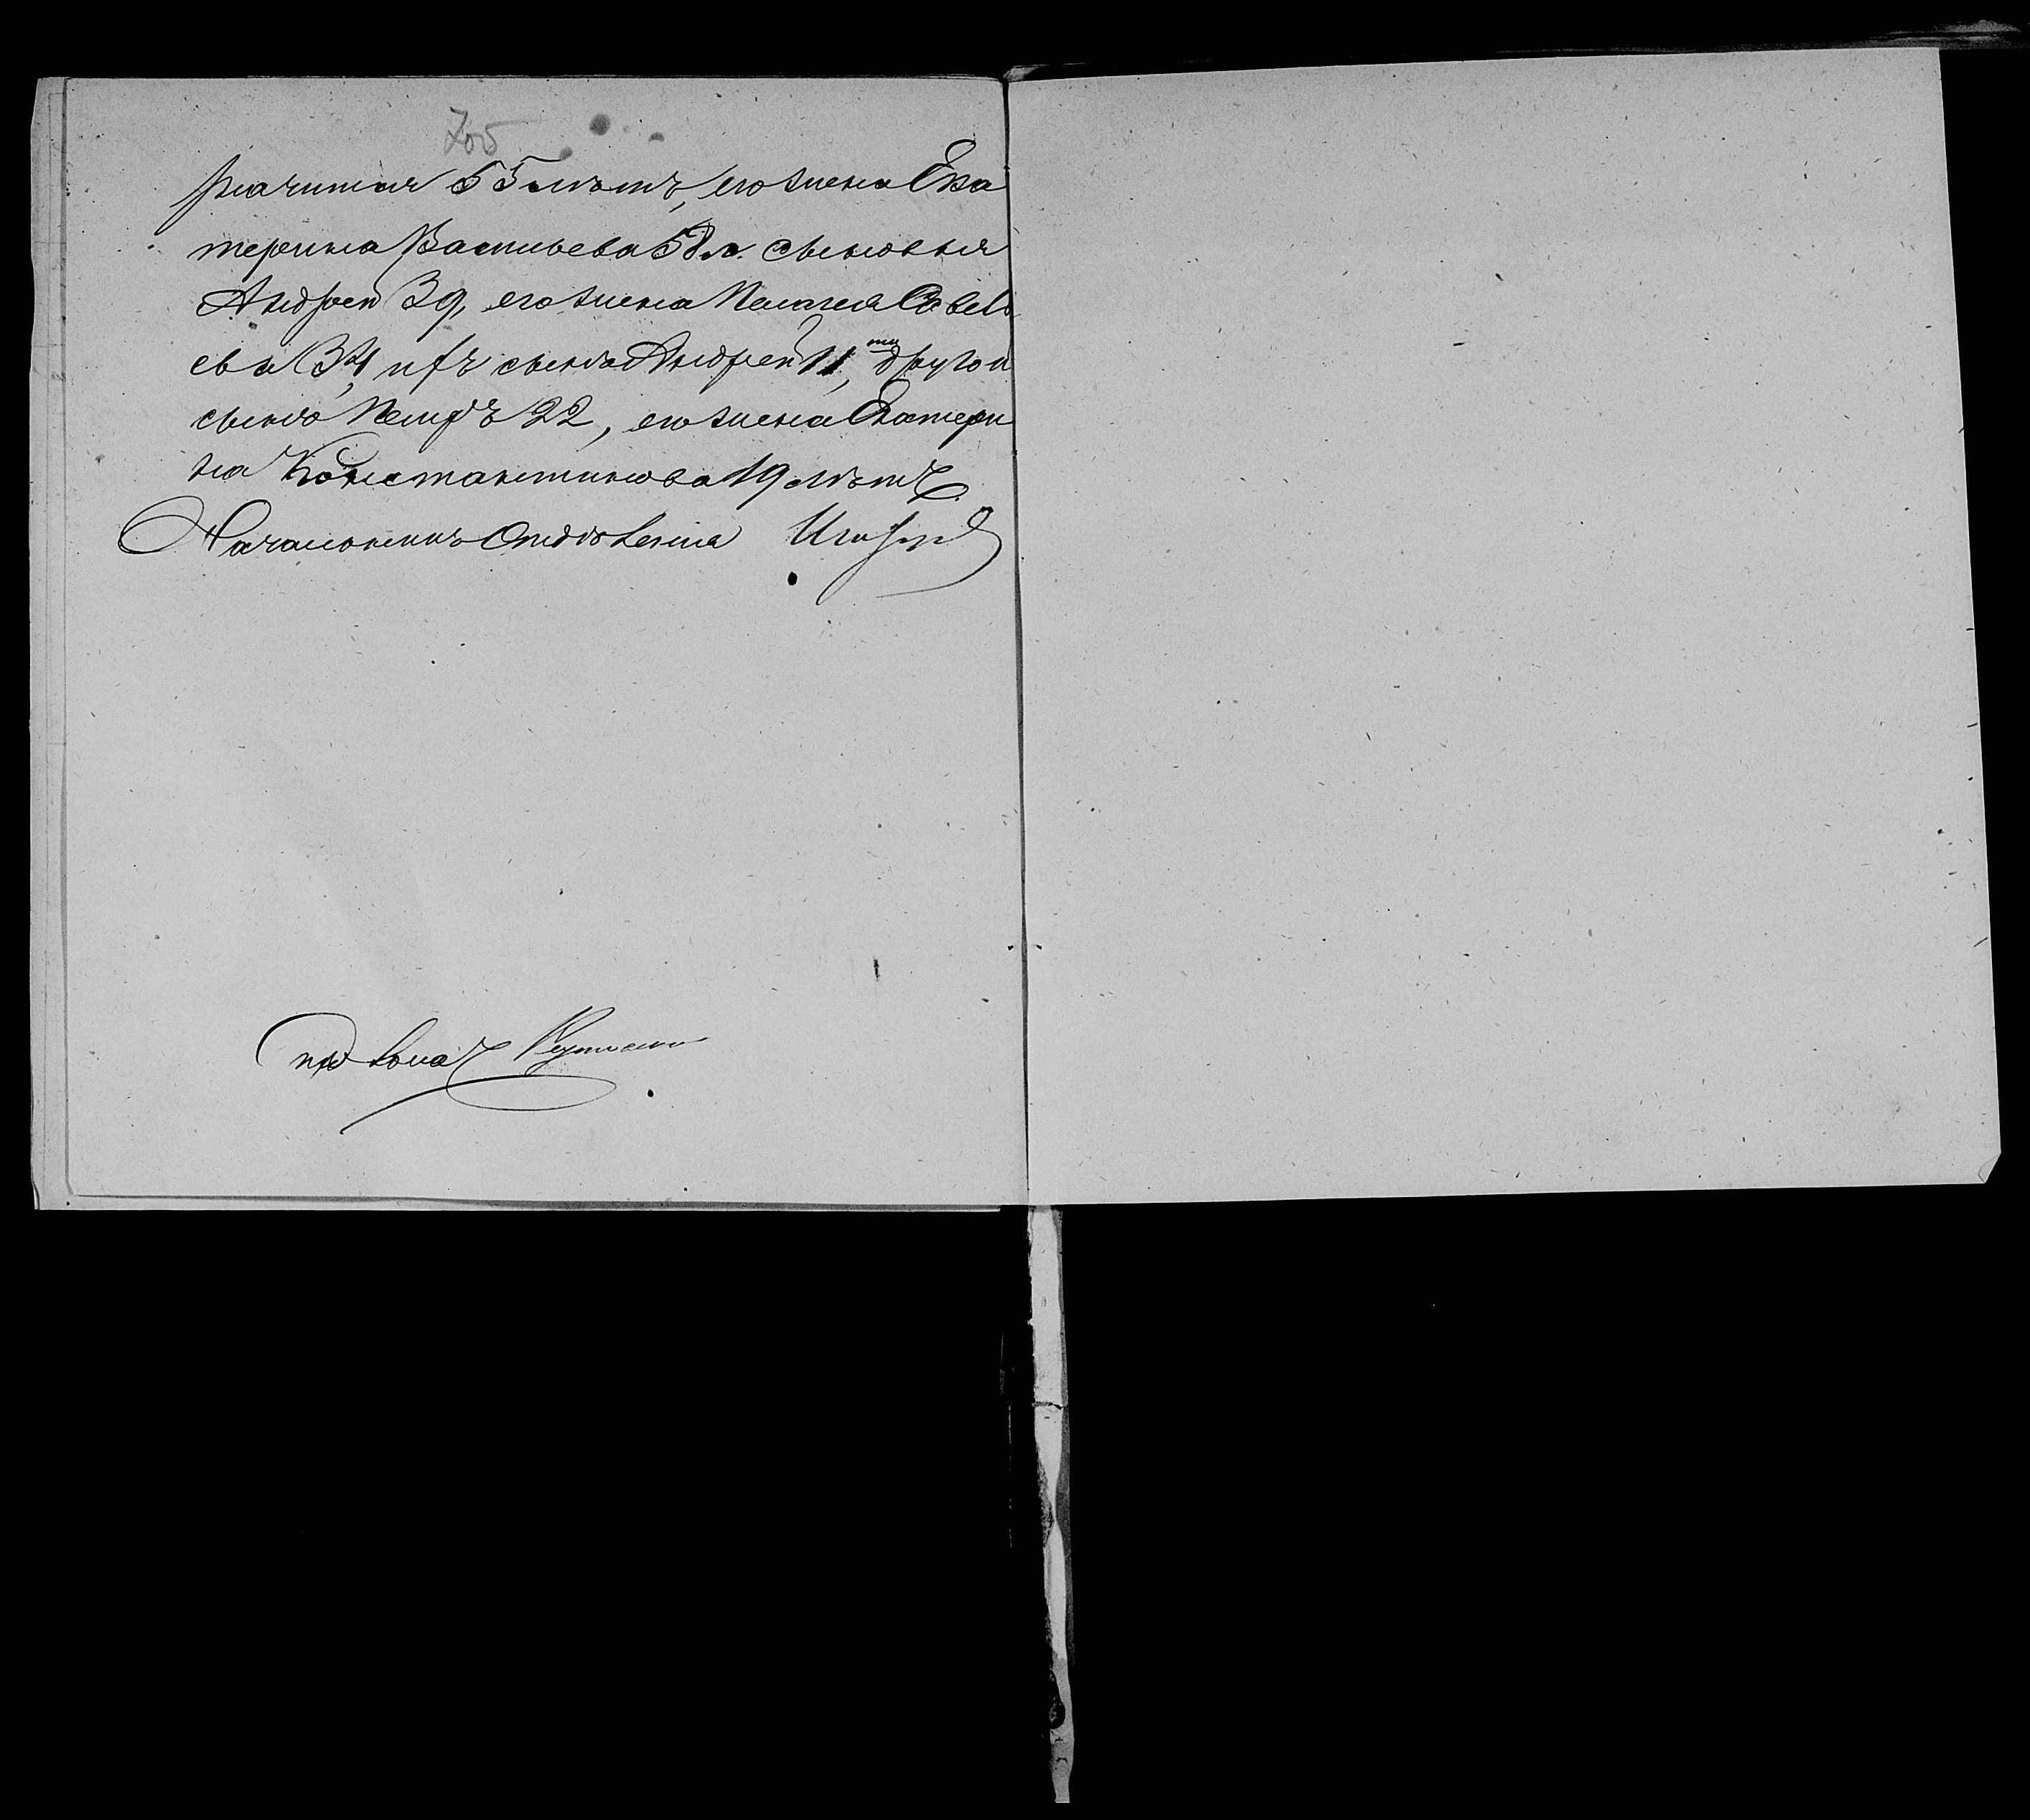 705
55 лѣтъ, его жена Ека
терина Васильева 58 л. сыновья
Андрей 39, его жена Пелагея Савель
ева 34, ихъ сынъ Андрей 11ти, другой
сынъ Петръ 22, его жена Екатери
на Константинова 19 лѣтъ
Начальникъ Отдѣленія